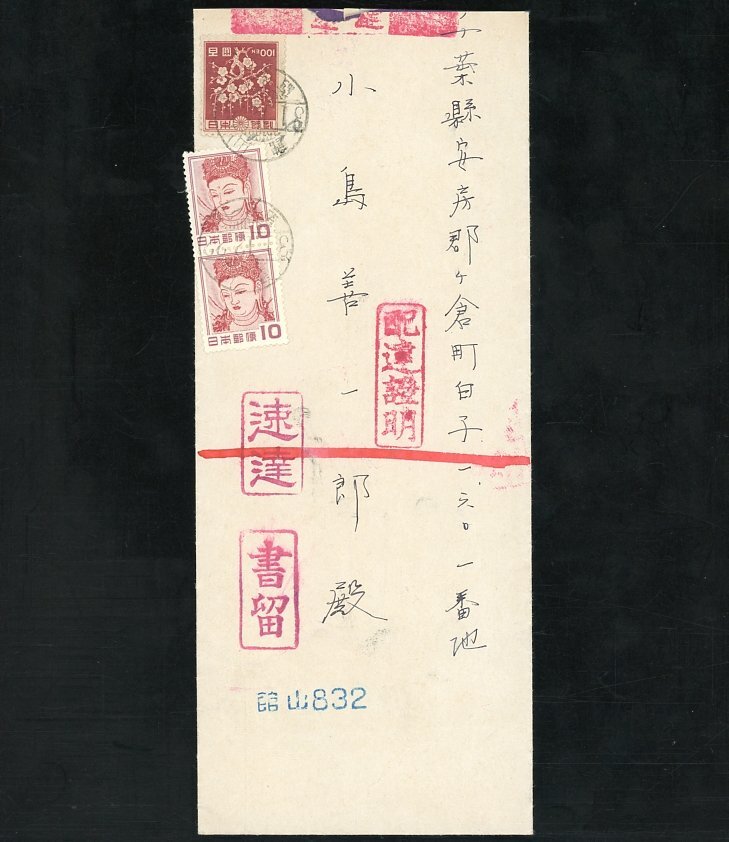 千葉縣安房郡ヶ倉町白子一、六〇一番地
小島善一郎殿
配達證明
速達
書留
舘山832
日本郵便
100EN
10
日本郵便
10
日本郵便